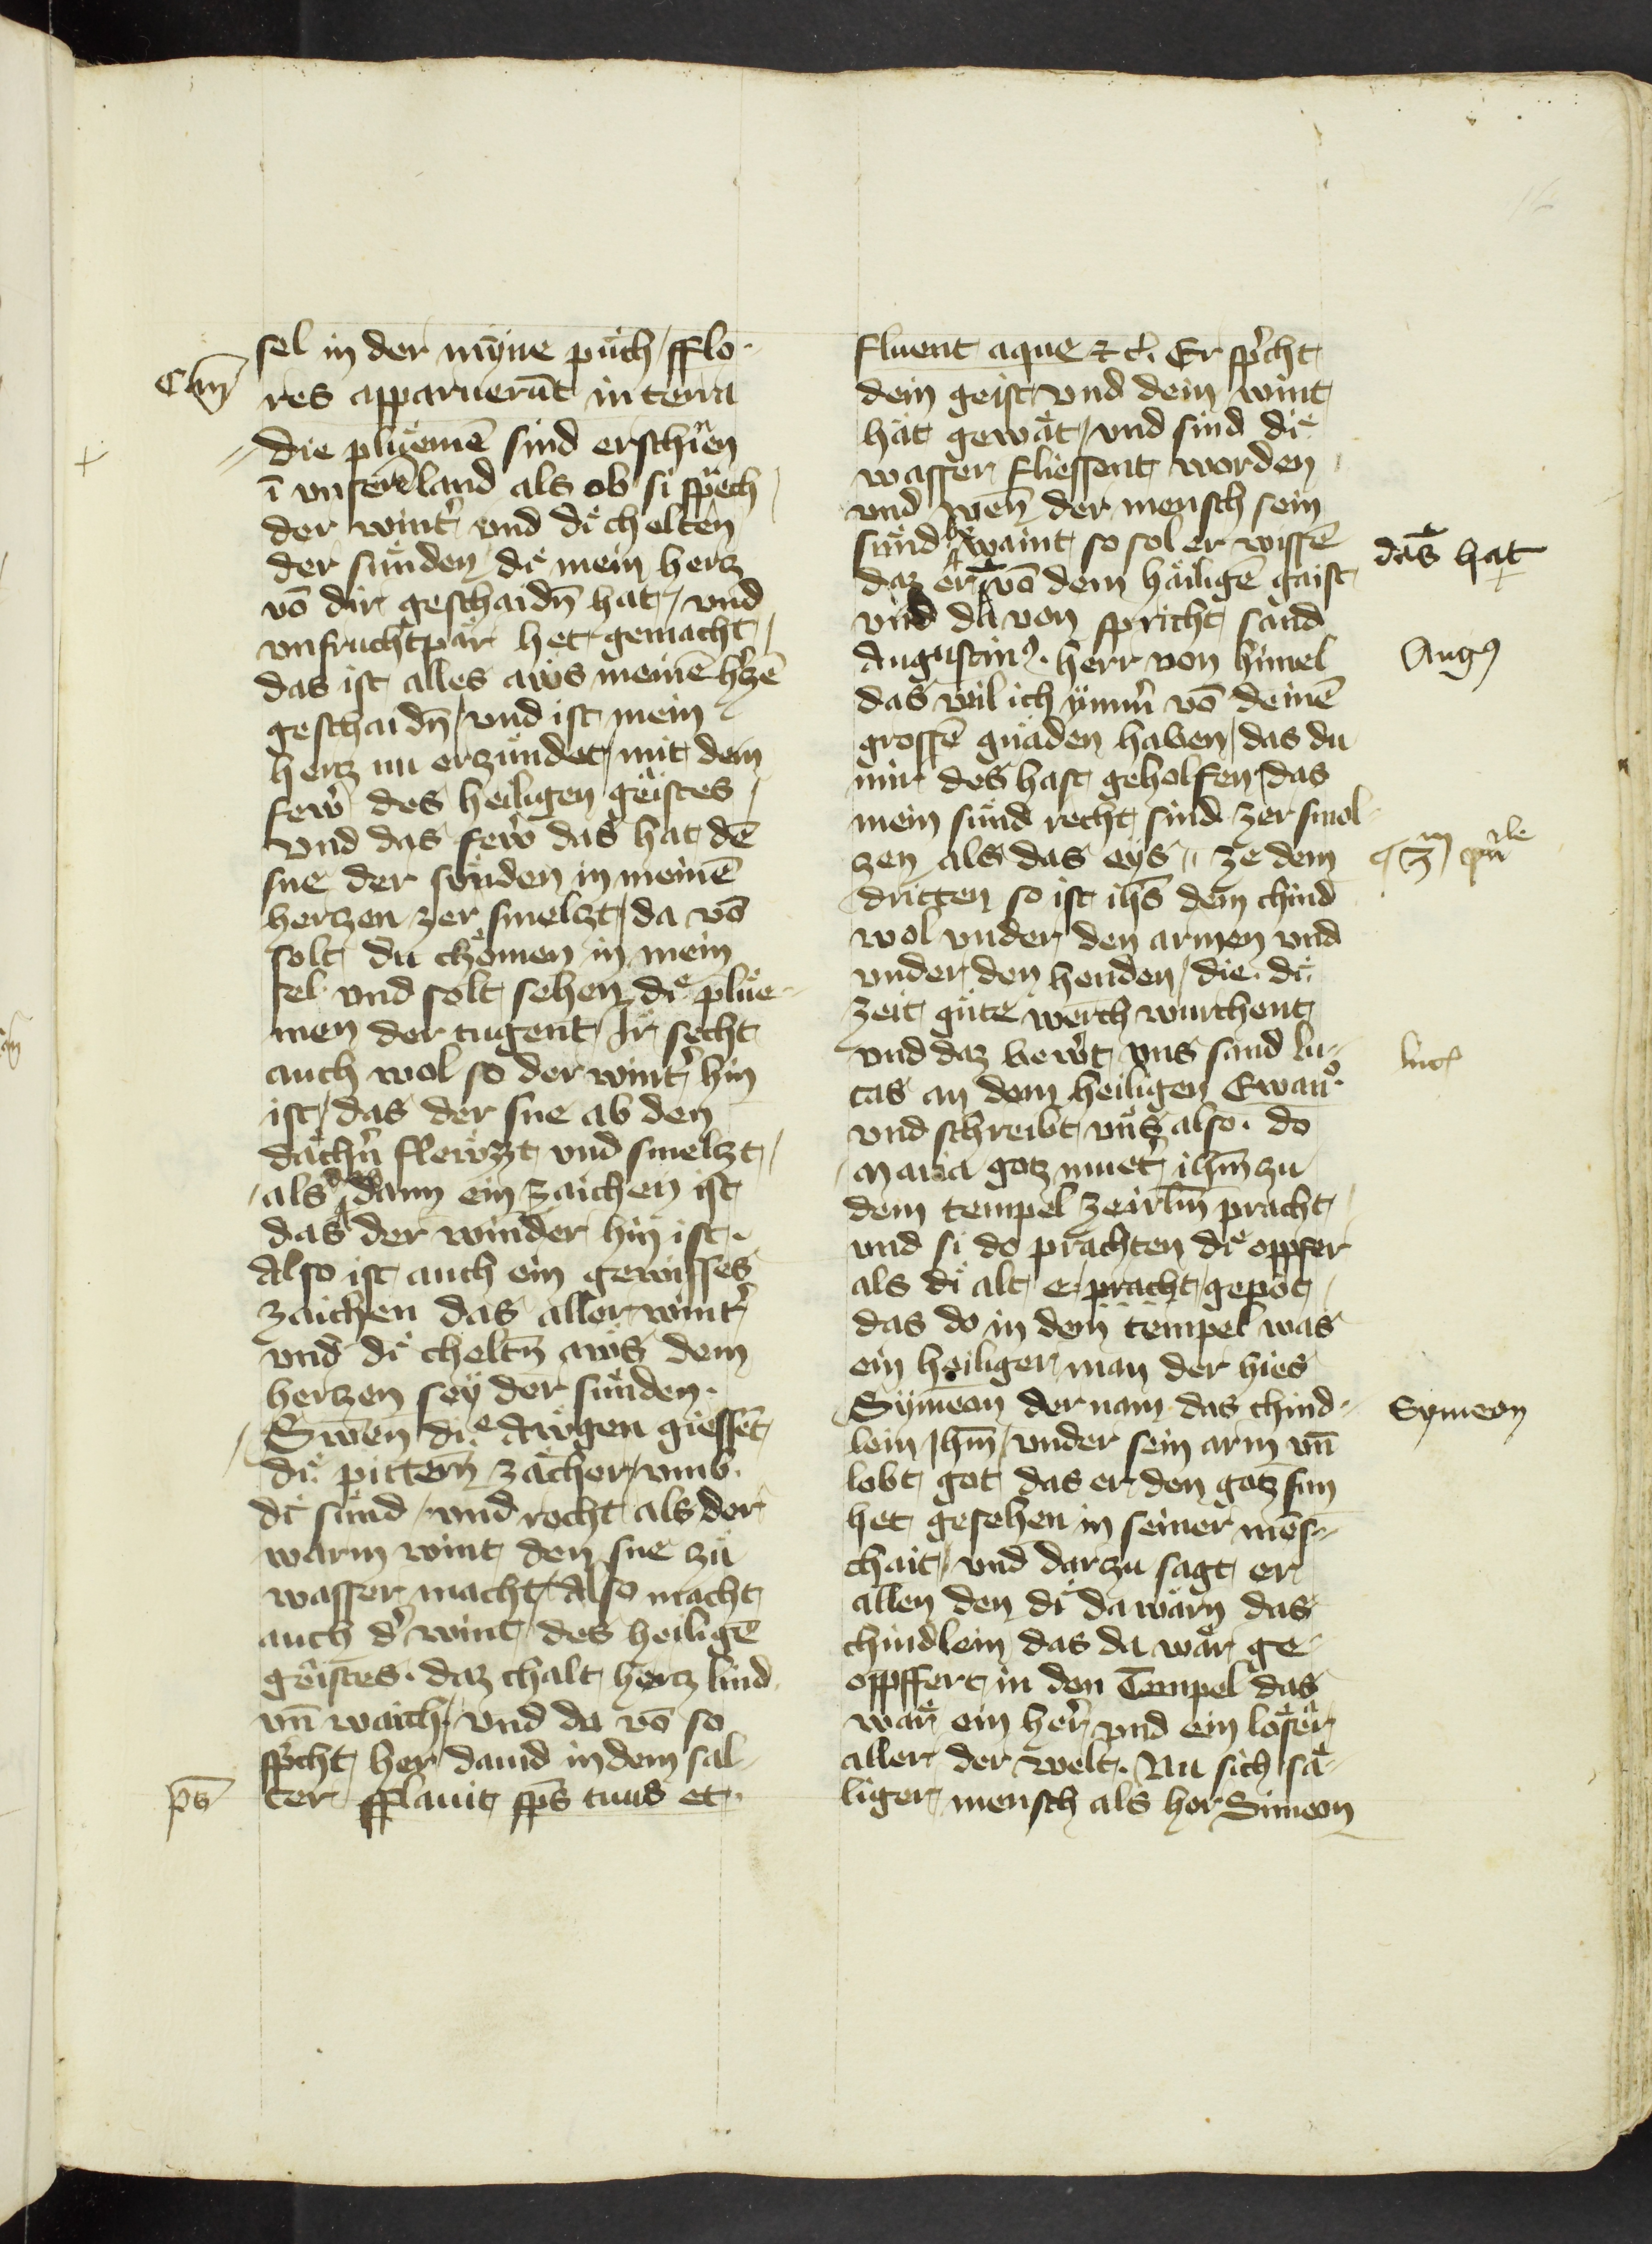 sel in der mÿne puͤch / fflo-
Cāṇ
res apparuerūt in terra
die plüemē sind erschinen
ī vnserē land als ob si sprech
der wintˀ vnd diͤ chelten
der sunden / diͤ mein hertz
vō dir geschaidn̄ hat / vnd
vnfruchtpär het gemacht /
das ist alles aws meinē hˀtzē
geschaidn̄ / vnd ist mein
hertz nu erzündet / mit dem
fewˀ des heiligen geistes /
vnd das fewˀ das hat dē
sne der sünden in meinē
hertzen zer smeltzt / da vō
solt du chömen in mein
sel vnd solt sehen diͤ plüe-
men der tugent / Ir secht
auch wol so der wintˀ hin
ist / das der sne ab den
dächˀn flewzt vnd smeltzt /
als dann ein zaichen ist
das der winder hin ist.
Also ist auch ein gewisses
zaichen das aller wintˀ
vnd diͤ cheltn̄ aws dem
hertzen seÿ der sünden.
Swen̄ diͤ Awgen giessēt
diͤ pittern̄ zächer / vmb
diͤ sünd / vnd recht als der
warm wint den sne zu
wasser macht / Also macht
auch dˀ wint des heiligē
geistes. daz chalt hertz lind
vn̄ waich / vnd da vō so
spˀcht her dauid in dem sal-
ps̄
ter fflauit sp̄s tuus et
fluent aque ⁊ cˀ. Er spˀcht
dein geist vnd dein wint
hat gewät / vnd sind diͤ
wasser fliessent worden /
vnd wen̄ der mensch sein
sünd bewaint so sol er wissē
das hat
daz er vō dem häiligē gaist
vnd da von spricht sand
Augustinꝰ. herr von himel
Augꝰ
das wil ich ÿmmˀ vō deinē
grossē gnäden haben / das du
mir des hast geholfen / das
mein sünd recht sind zer smol-
zen als das eÿs // ze dem
dritten so ist ihs̄ dem chind
wol vnder den armen vnd
vnder den henden / die diͤ
zeit güte werch wurchent
vnd daz bewˀt vns sand lu-
luc
cas an dem heiligen Ewanͦ.
vnd schreibt vns also. do
Maria gotz muetˀ ihm̄ zu
dem tempel ze irlm̄ pracht /
vnd si do prachten diͤ oppfer
als diͤ alt e pracht / gepot /
das do in dem tempel was
ein heiliger man der hies
Sÿmeon der nam das chind-
Symeon
lein Ihm̄ / vnder sein arm vn̄
lobt got das er den gotz sun
het gesehen in seiner mēs-
chait / vnd darzu sagt er
allen den diͤ da wärn das
chindlein das da wär ge-
oppffert in den Tempel das
wär ein herˀ vnd ein löser
aller der welt. Nu sich sä-
liger mensch als her Simeon